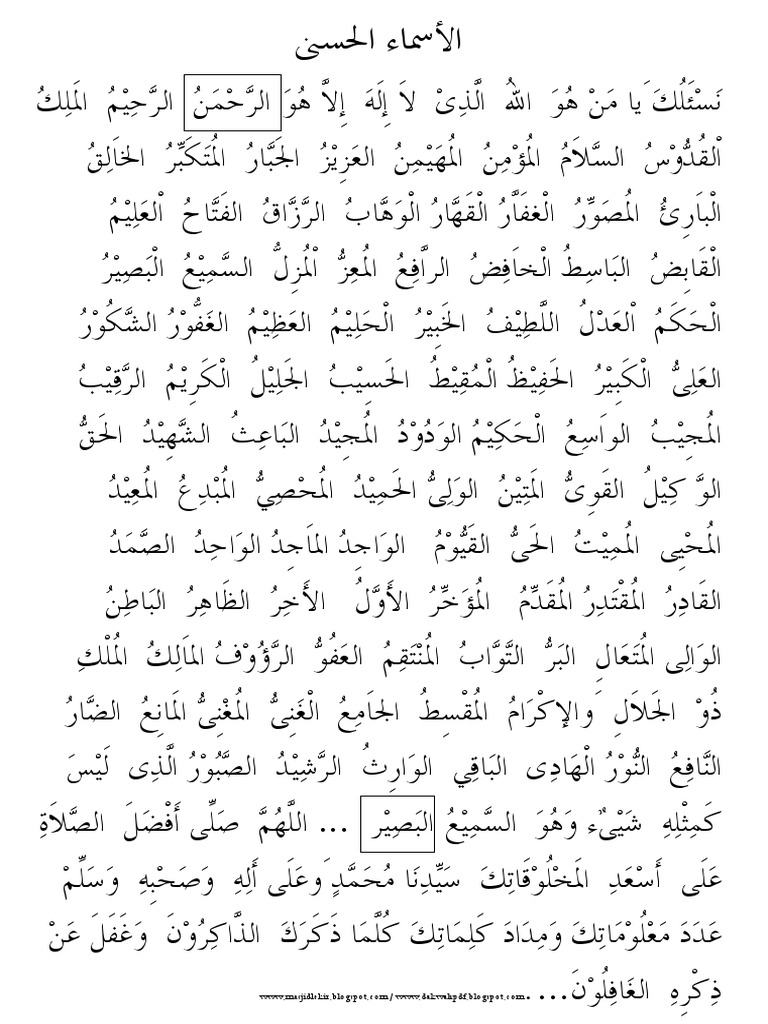 الأسماء الحسنى
نَسْئَلُكَ يَا مَنْ هُوَ اللهُ الَّذِىْ لاَ إِلَهَ إِلاَّ هُوَ الرَّحْمَنُ الرَّحِيْمُ المَلِكُ
اْلقُدُّوْسُ السَّلاَمُ المُؤْمِنُ المُهَيْمِنُ العَزِيْزُ الجَبَّارُ المُتَكَبِّرُ الخَالِقُ
الْبَارِئُ المُصَوِّرُ الْغفَاَّرُ الْقَهَّارُ الْوَهَّابُ الرَّزَّاقُ الفَتَّاحُ اْلعَلِيْمُ
الْقَابِضُ البَاسِطُ الْخاَفِضُ الراَّفِعُ المُعِزُّ اْلمُزِلُّ السَّمِيْعُ الْبَصِيْرُ
الْحَكَمُ اْلعَدْلُ اللَّطِيْفُ الخَبِيْرُ الْحَلِيْمُ العَظِيْمُ الغَفُّوْرُ الشَّكُوْرُ
العَلِىُّ الْكَبِيْرُ الحَفِيْظُ الْمُقِيْطُ الحَسِيْبُ الجَلِيْلُ الْكَرِيْمُ الرَّقِيْبُ
المُجِيْبُ الواَسِعُ الْحَكِيْمُ الوَدُوْدُ المُجِيْدُ البَاعِثُ الشَّهِيْدُ الحَقُّ
الوَّكِيْلُ القَوِىُّ المَتِيْنُ الوَلِىُّ الحَمِيْدُ المُحْصِيُّ المُبْدِعُ المُعِيْدُ
المُحْيِى المُمِيْتُ الحَىُّ القَيُّوْمُ الوَاجِدُ الماَجِدُ الوَاحِدُ الصَّمَدُ
القَادِرُ المُقْتَدِرُ المُقَدِّمُ المُؤَخِّرُ الأَوَّلُ الأَخِرُ الظَاهِرُ البَاطِنُ
الوَالِى المُتَعَالِ البَرُّ التَّوَّابُ المُنْتَقِمُ العَفُوُّ الرَّؤُوْفُ الماَلِكُ المُلْكِ
ذُوْ الجَلاَلِ وَالإكْرَامُ المُقْسِطُ الجاَمِعُ الْغَنِىُّ المُغْنِىُّ المَانِعُ الضَارُّ
النَّافِعُ النُّوْرُ الْهَادِى البَاقِي الوَارِثُ الرَّشِيْدُ الصَّبُوْرُ الَّذِى لَيْسَ
كَمِثْلِهِ شَيْىٌء وَهُوَ السَّمِيْعُ البَصِيْر ... اللَّهُمَّ صَلِّى أَفْضَلَ الصَّلاَةِ
عَلَى أَسْعَدِ المَخْلُوْقَاتِكَ سَيِّدِنَا مُحَمَّدٍ وَعَلَى أَلِهِ وَصَحْبِهِ وَسَلِّمْ
عَدَدَ مَعْلُوْمَاتِكَ وَمِدَادَ كَلِمَاتِكَ كُلَّمَا ذَكَرَكَ الذَّاكِرُوْنَ وَغَفَلَ عَنْ
ذِكْرِهِ الغَافِلُوْنَ....
www.masjidlekir.blogspot.com / www.dakwahpdf.blogspot.com